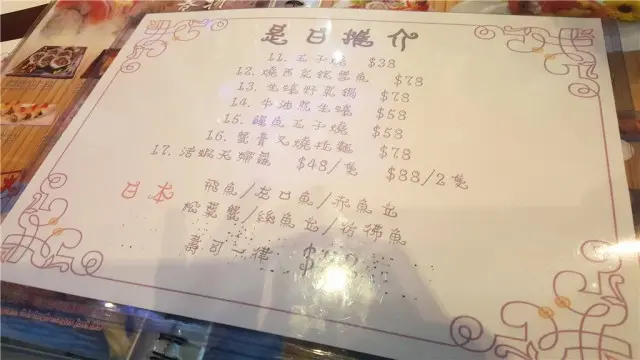 是日推介
11. 玉子燒 $38
12. 燒西京銀鱈魚 $78
13. 生蠔好菜鍋 $78
14. 牛油煎生蠔 $58
15. 鰻魚玉子燒 $58
16. 蟹膏叉燒拉麵 $78
17. 活蝦天婦羅 $48/隻 $88/2隻
日本 飛魚/左口魚/赤魚
松葉蟹/絲魚/彷彿魚
壽司一律 $